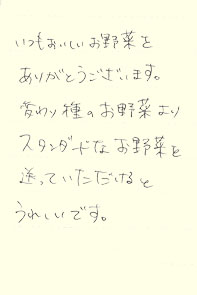 いつもおいしいお野菜を
ありがとうございます。
変わり種のお野菜より
スタンダードなお野菜を
送っていただけると
うれしいです。